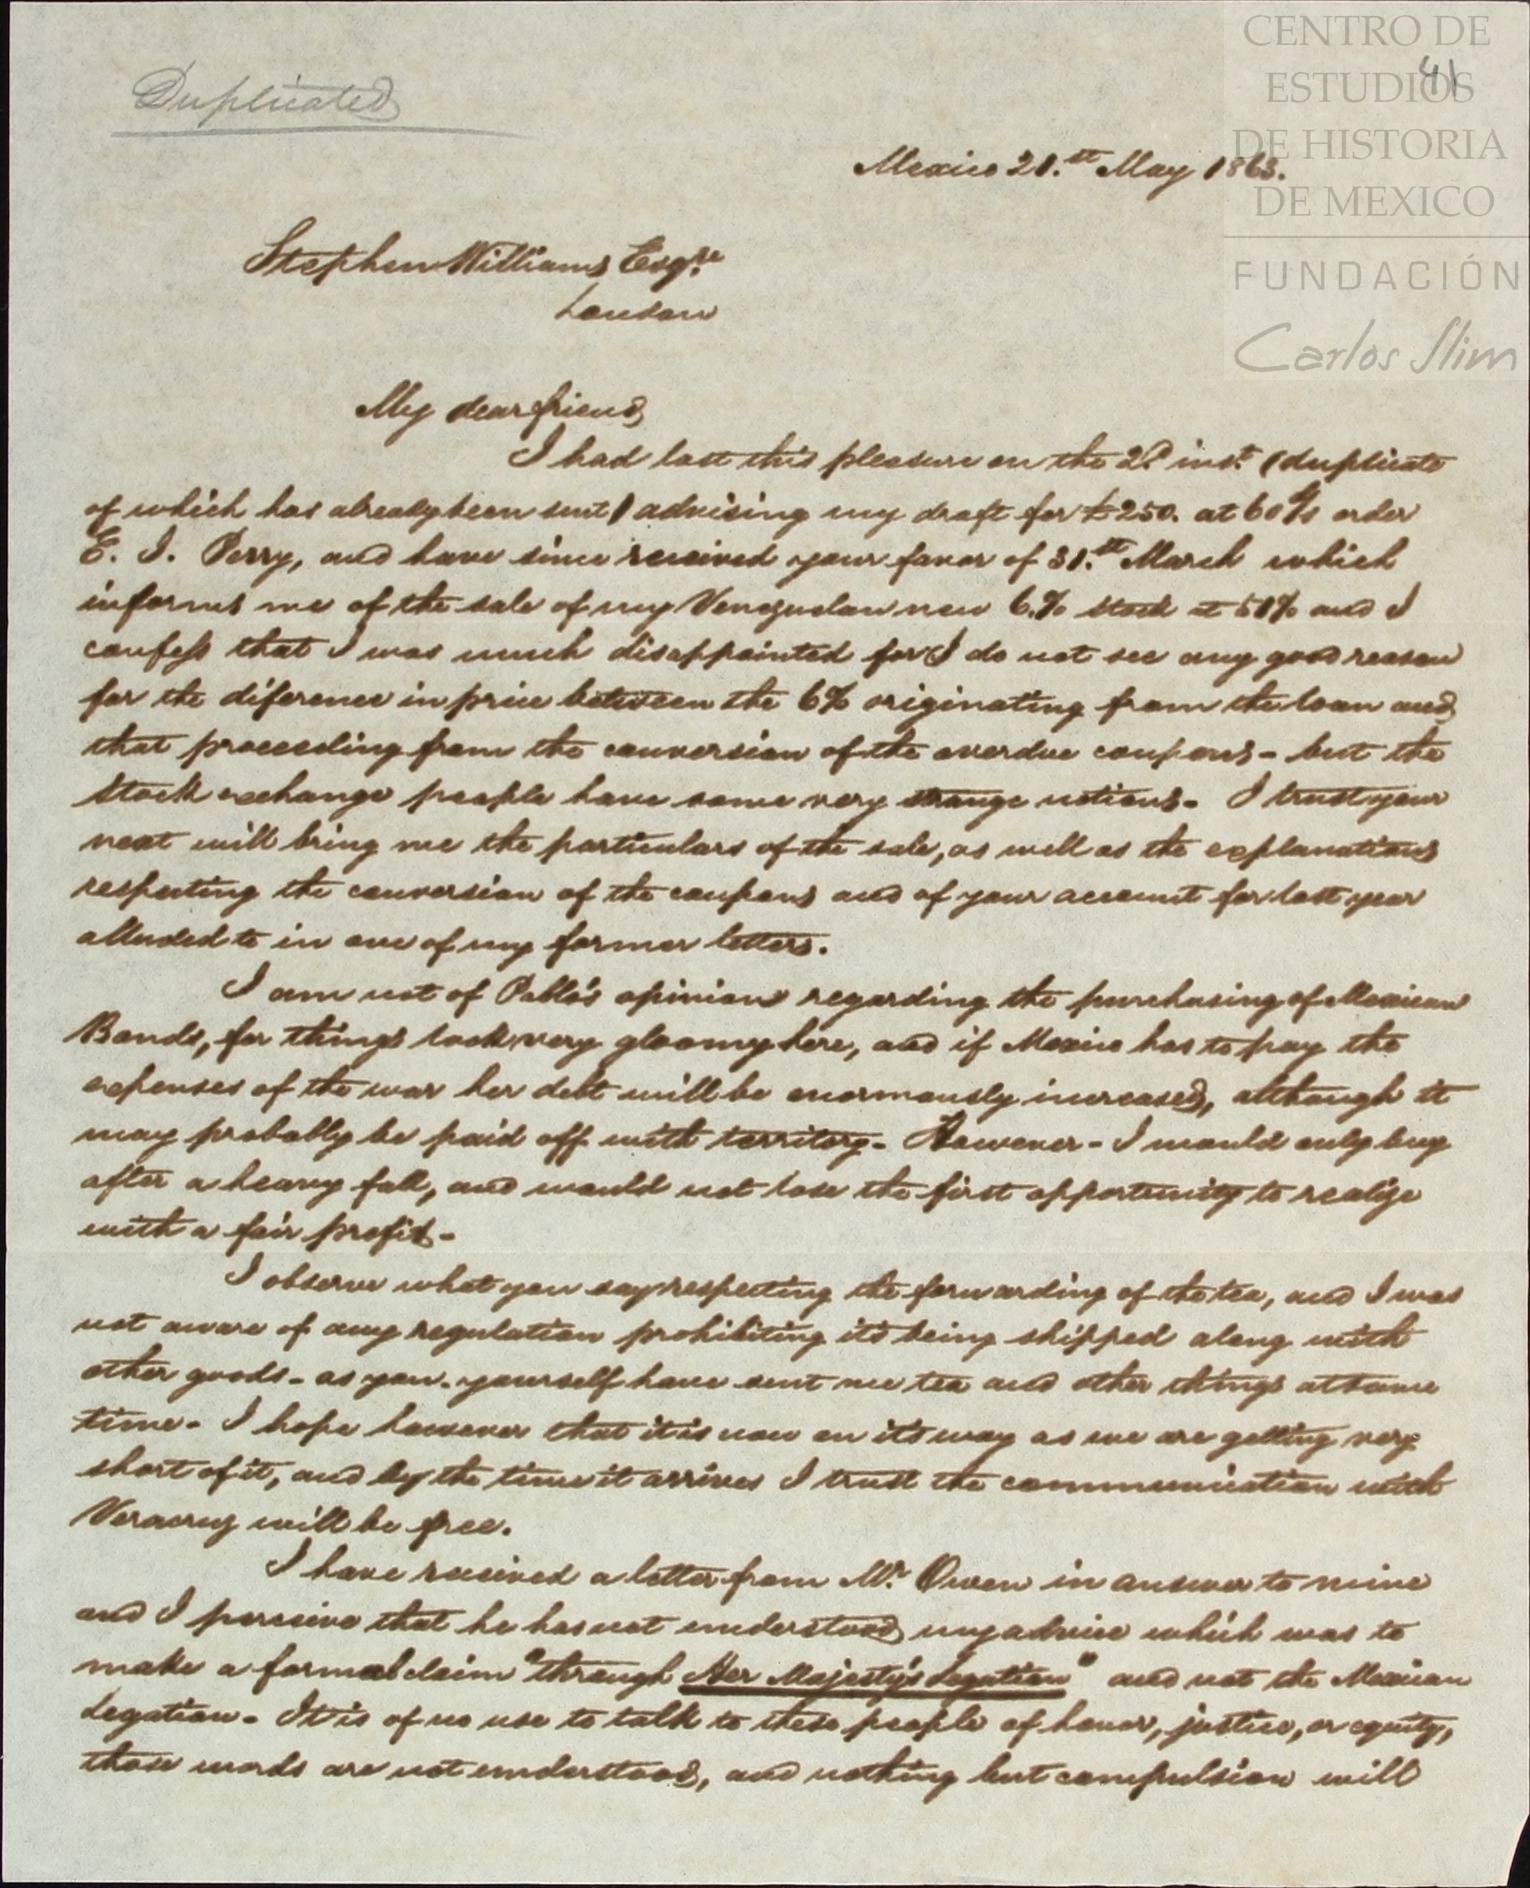 CENTRO DE
ESTUDIOS
DE HISTORIA
DE MEXICO
FUNDACIÓN
Carlos Slim
41
Duplicated
Mexico 21.st May 1863.
Stephen Williams Esqre
London
My dear friend,
I had last this pleasure on the 2d inst. (duplicate
of which has already been sent) advising my draft for £250. at 60 d/s order
E. J. Perry, and have since received your favor of 31.st March which
informs me of the sale of my Venezuelan new 6.% stock at 51% and I
confess that I was much disappointed for I do not see any good reason
for the diference in price between the 6% originating from the loan and
that proceeding from the conversion of the overdue coupons - but the
Stock exchange people have some very strange notions. I trust your
next will bring me the particulars of the sale, as well as the explanations
respecting the conversion of the coupons and of your account for last year
alluded to in one of my former letters.
I am not of Pablo's opinion regarding the purchasing of Mexican
Bonds, for things look very gloomy here, and if Mexico has to pay the
expenses of the war her debt will be enormously increased, although it
may probably be paid off with territory - However - I would only buy
after a heavy fall, and would not lose the first opportunity to realize
with a fair profit -
I observe what you say respecting the forwarding of the tea, and I was
not aware of any regulation prohibiting its being shipped along with
other goods - as you yourself have sent me tea and other things at same
time - I hope however that it is now on its way as we are getting very
short of it, and by the time it arrives I trust the communication with
Veracruz will be free.
I have received a letter from Mr. Owen in answer to mine
and I perceive that he has not understood my advice which was to
make a formal claim "through Her Majesty's Legation" and not the Mexican
Legation - It is of no use to talk to these people of honor, justice, or equity,
those words are not understood, and nothing but compulsion will